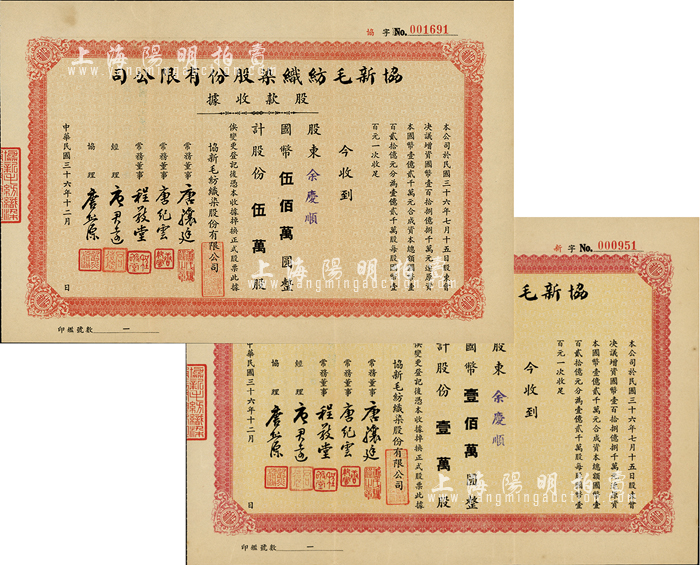 協 字 No. 001691
協新毛紡織染股份有限公司
股款收據
本公司於民國三十六年七月十五日股東會
決議增資國幣壹百拾捌億捌千萬元連原資
本國幣壹億貳千萬元合成資本總額國幣壹
百貳拾億元分為壹億貳千萬股每股國幣壹
百元一次收足
今收到
股東 余慶順
國幣 伍佰萬 圓整
計股份 伍萬 股
俟變更登記後憑本收據掉換正式股票此據
協新毛紡織染股份有限公司
常務董事 唐驤廷
常務董事 唐紀雲
常務董事 程敬堂
經理 唐君遠
協理
中華民國三十六年十二月 日
印鑑號數 一
新 字 No. 000951
協新毛
本公司於民國三十六年七月十五日股東會
決議增資國幣壹百拾捌億捌千萬
資
本國幣壹億貳千萬元合成資本總額國幣壹
百貳拾億元分為壹億貳千萬股每
幣壹
百元一次收足
今收到
股東 余慶順
國幣 壹佰萬 圓整
計股份 壹萬 股
俟變更登記後憑本收據掉換正式股票此據
協新毛紡織染股份有限公司
常務董事 唐驤廷
常務董事 唐紀雲
常務董事 程敬堂
經理 唐君遠
協理
中華民國三十六年十二月 日
印鑑號數 一
上海陽明拍賣
www.yangmingauction.com
上海陽明拍賣
www.yangmingauction.com